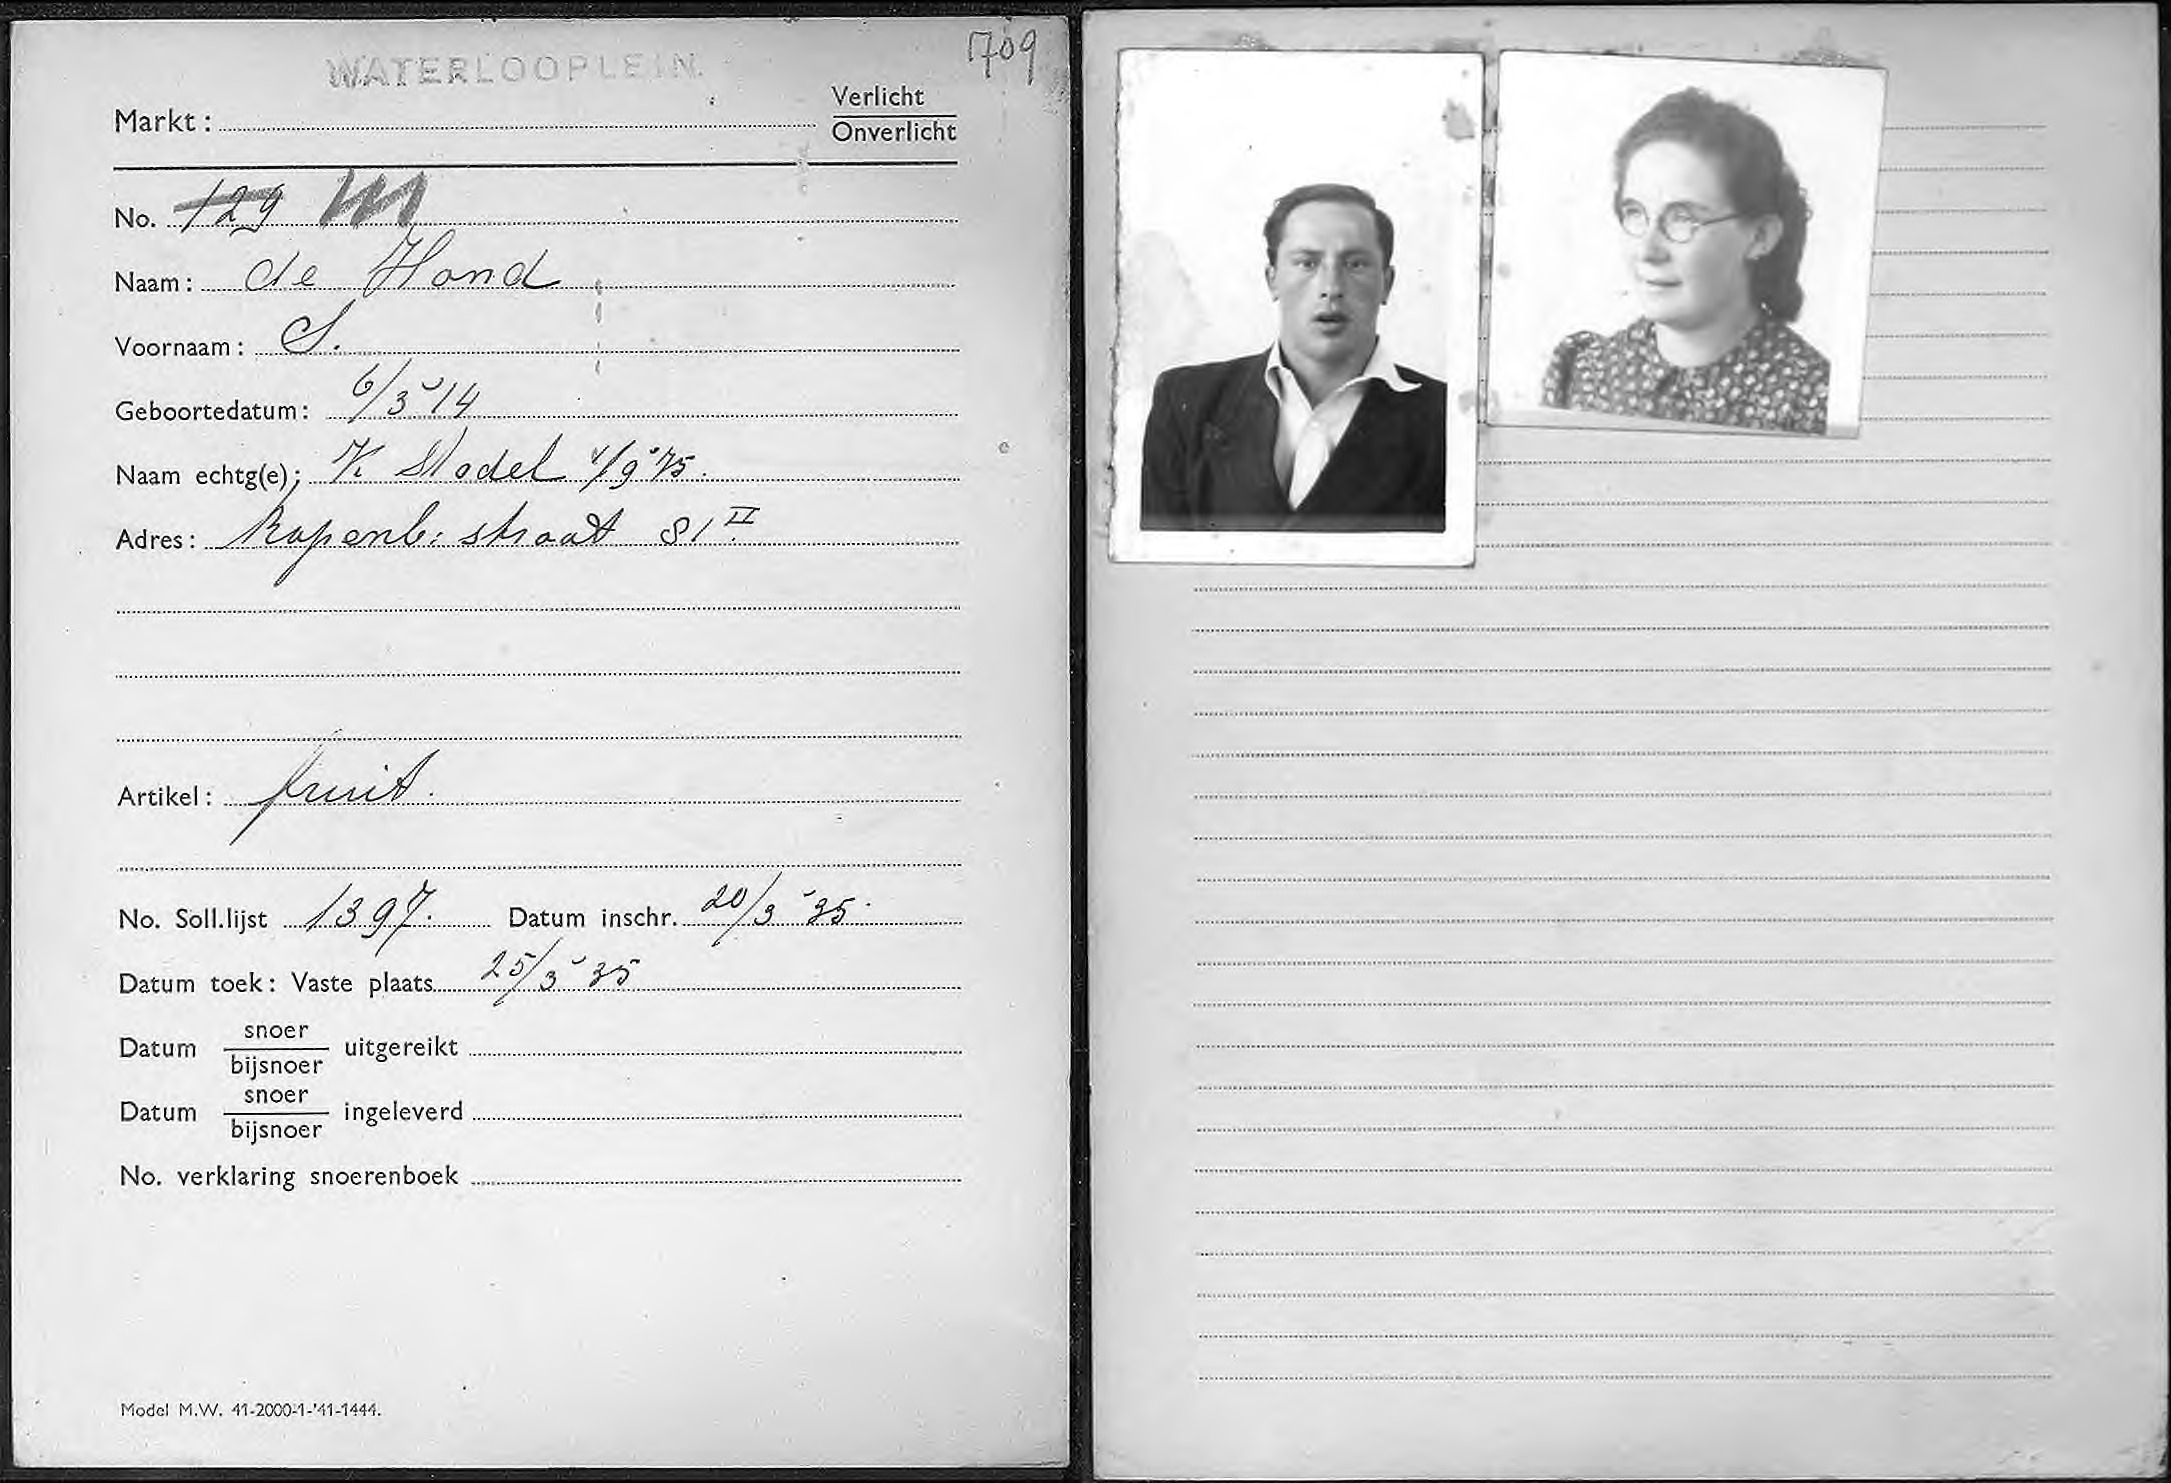 1709
WATERLOOPLEIN.
Markt :
Verlicht
Onverlicht
No. 129
Naam : de Hond
Voornaam : S.
Geboortedatum : 6/3 '14
Naam echtg(e) ; K Stodel /9 '15.
Adres : Rapenb: straat 81 II
Artikel : fruit.
No. Soll.lijst 1397. Datum inschr. 20/3 '35.
Datum toek : Vaste plaats 25/3 '35
Datum snoer / bijsnoer uitgereikt
Datum snoer / bijsnoer ingeleverd
No. verklaring snoerenboek
Model M.W. 41-2000-1-'41-1444.